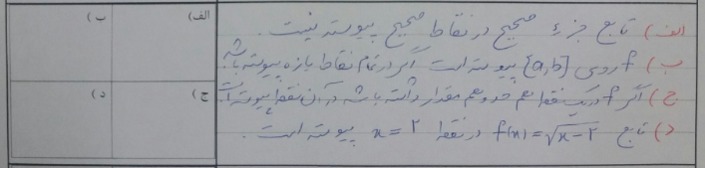 الف) تابع جزء صحیح در نقاط صحیح پیوسته نیست.
ب) f روی [a,b] پیوسته است اگر در تمام نقاط بازه پیوسته باشد.
ج) اگر f در یک نقطه هم حد و هم مقدار داشته باشد در آن نقطه پیوسته است.
د) تابع f(x)=√x-۲ در نقطه x=۲ پیوسته است.
الف)
ب)
ج)
د)